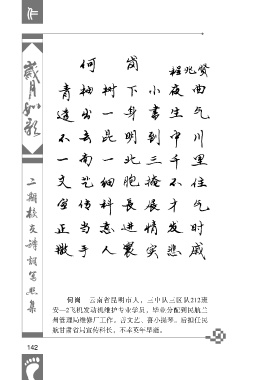 歲月如歌
二期校友诗词写照集
何岗
程兆贤
青柚树下小夜曲
遗出一身書生气
不去昆明到中川
一南一北三千里
文艺细胞掩不住
宣传科长展才气
正当意进情发时
撒手人寰实悲戚
何岗 云南省昆明市人，三中队三区队212班
安—2飞机发动机维护专业学员。毕业分配到民航兰
州管理局维修厂工作。善文艺、喜小提琴。后担任民
航甘肃省局宣传科长，不幸英年早逝。
142